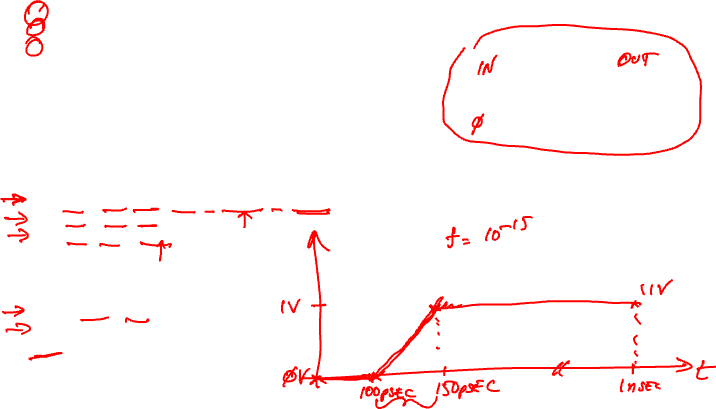 IN OUT
∅
f = 10^-15
1V 1V
∅V
100psec 150psec 1nsec t